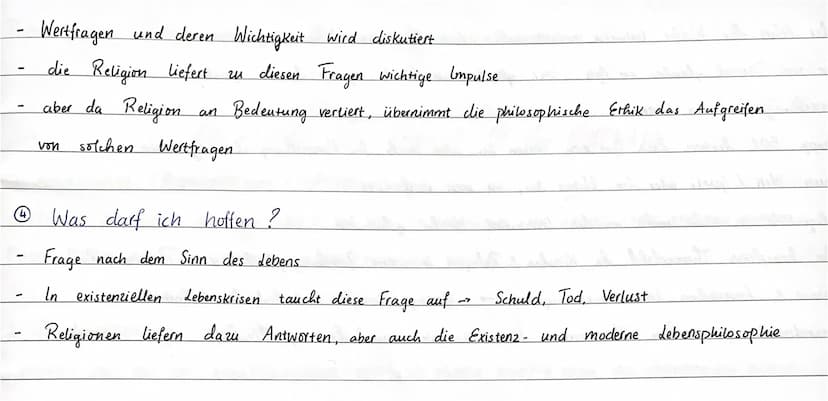 - Wertfragen und deren Wichtigkeit wird diskutiert
- die Religion liefert zu diesen Fragen wichtige Impulse
- aber da Religion an Bedeutung verliert, übernimmt die philosophische Ethik das Aufgreifen
von solchen Wertfragen
④ Was darf ich hoffen?
- Frage nach dem Sinn des Lebens
- In existenziellen Lebenskrisen taucht diese Frage auf → Schuld, Tod, Verlust
- Religionen liefern dazu Antworten, aber auch die Existenz- und moderne Lebensphilosophie